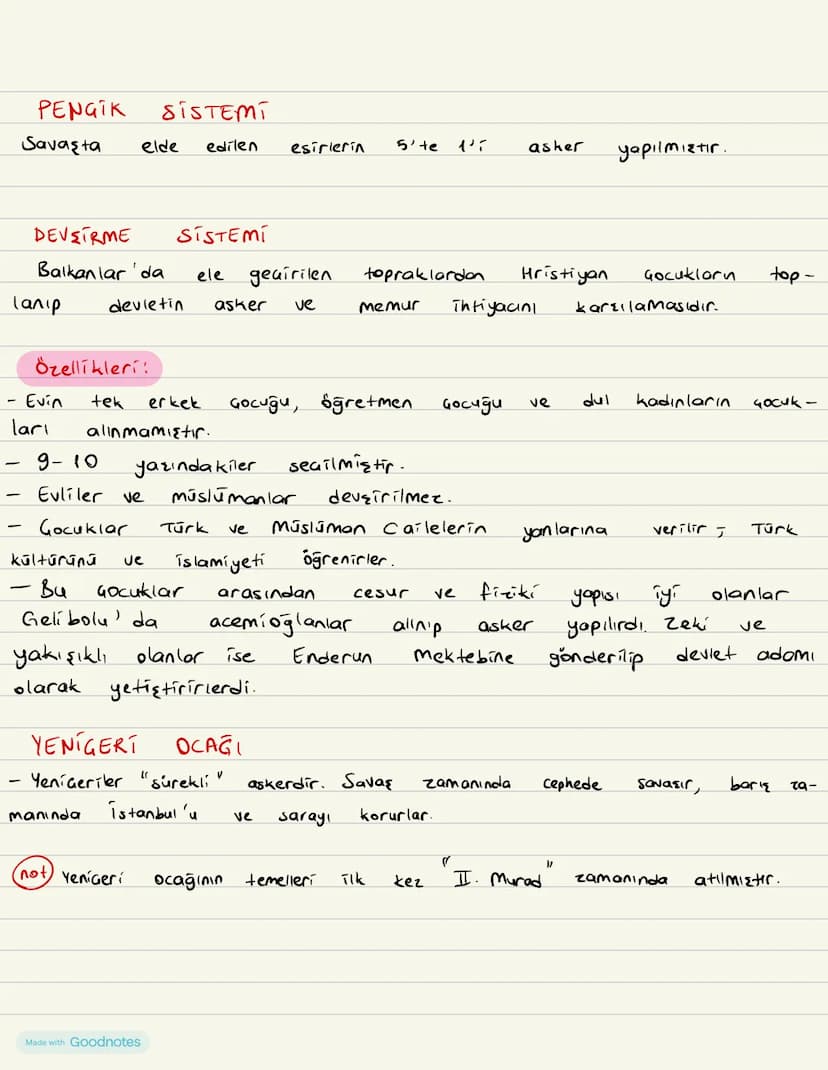 PENÇİK SİSTEMİ
Savaşta elde edilen esirlerin 5'te 1'i asker yapılmıştır.
DEVŞİRME SİSTEMİ
Balkanlar'da ele geçirilen topraklardan Hristiyan çocukların top-
lanıp devletin asker ve memur ihtiyacını karşılamasıdır.
Özellikleri:
- Evin tek erkek çocuğu, öğretmen çocuğu ve dul kadınların çocuk-
ları alınmamıştır.
- 9-10 yaşındakiler seçilmiştir.
- Evliler ve müslümanlar devşirilmez.
- Çocuklar Türk ve Müslüman ailelerin yanlarına verilir; Türk
kültürünü ve islamiyeti öğrenirler.
- Bu çocuklar arasından cesur ve fiziki yapısı iyi olanlar
Gelibolu'da acemioğlanlar alınıp asker yapılırdı. Zeki ve
yakışıklı olanlar ise Enderun Mektebine gönderilip devlet adamı
olarak yetiştirirlerdi.
YENİÇERİ OCAĞI
- Yeniçeriler "sürekli" askerdir. Savaş zamanında cephede savaşır, barış za-
manında İstanbul'u ve sarayı korurlar.
not Yeniçeri ocağının temelleri ilk kez "II. Murad" zamanında atılmıştır.
Made with Goodnotes